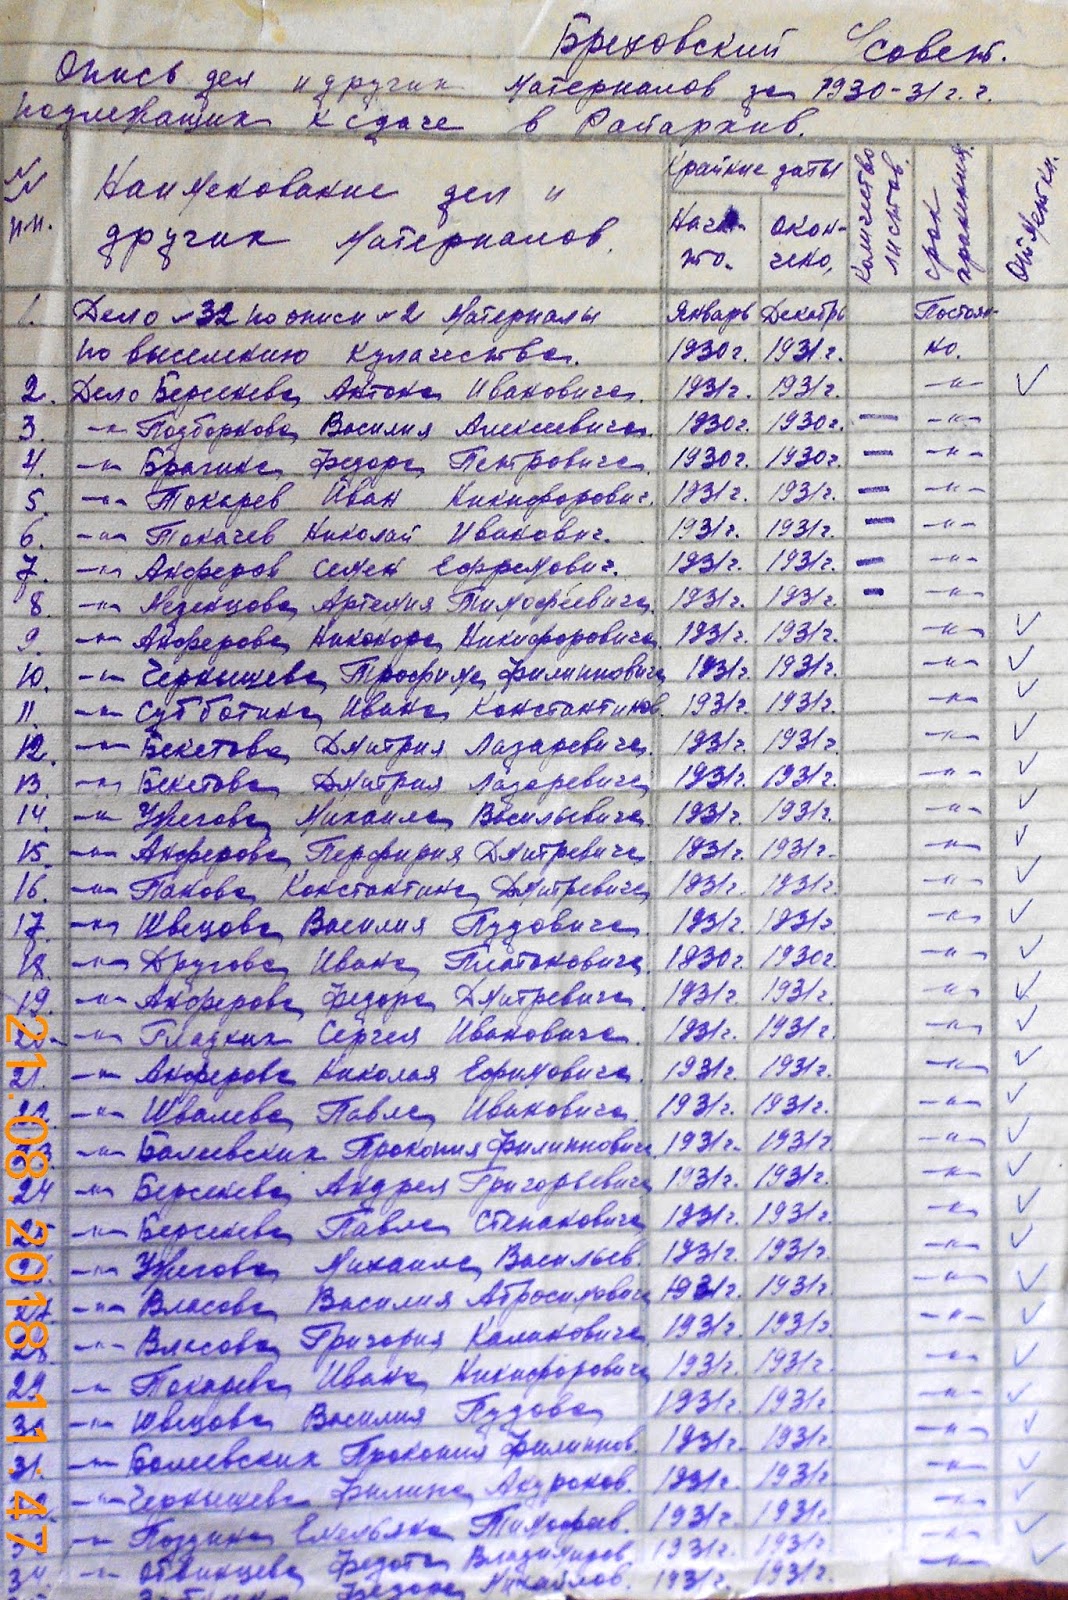 Бреховский с/совет.
Опись дел и других материалов за 1930-31г.г.
подлежащих к сдаче в Райархив.
№№ п.п. Наименование дел и других материалов. Крайние даты Начато. Окончено, Количество листов. Срок хранения. Отметки.
1. Дело №32 по описи №2 Материалы Январь Декабрь Постоян-
по выселению кулачества. 1930г. 1931г. но.
2. Дело Берсенева Антона Ивановича. 1931г. 1931г. -"- ✓
3. -"- Подборнова Василия Алексеевича. 1930г. 1930г. — -"-
4. -"- Брагина Федора Петровича. 1930г. 1930г. — -"-
5. -"- Токарев Иван Никифорович. 1931г. 1931г. — -"-
6. -"- Николай Иванович. 1931г. 1931г. — -"-
7. -"- Анферов Семен Ефремович. 1931г. 1931г. — -"-
8. -"- Артемия Тимофеевича. 1931г. 1931г. - -"-
9. -"- Анферова Никонора Никифоровича 1931г. 1931г. -"- ✓
10. -"- Чернышева Трофима Филипповича 1931г. 1931г. -"- ✓
11. -"- Субботина Ивана Константинов. 1931г. 1931г. -"- ✓
12. -"- Бекетова Дмитрия Лазаревича. 1931г. 1931г. -"- ✓
13. -"- Бекетова Дмитрия Лазаревича 1931г. 1931г. -"- ✓
14. -"- Ужегова Михаила Васильевича. 1931г. 1931г. -"- ✓
15. -"- Анферова Перфирия Дмитревича 1931г. 1931г. -"- ✓
16. -"- Панова Константина Дмитревича 1931г. 1931г. -"- ✓
17. -"- Швецова Василия Пудовича. 1931г. 1931г -"- ✓
18. -"- Другова Ивана Платоновича. 1930г. 1930г -"- ✓
19. -"- Анферова Федора Дмитревича. 1931г. 1931г. -"- ✓
-"- Гладких Сергея Ивановича. 1931г. 1931г. -"- ✓
21. -"- Анферова Николая Ефимовича. 1931г. 1931г. -"- ✓
22. -"- Швалева Павла Ивановича. 1931г. 1931г. -"- ✓
23. -"- Балеевских Прокопия Филипповича 1931г. 1931г. -"- ✓
24 -"- Берсенева Андрея Григорьевича 1931г. 1931г. -"- ✓
25 -"- Берсенева Павла Степановича 1931г. 1931г. -"- ✓
-"- Ужегова Михаила Васильев. 1931г. 1931г. -"- ✓
27 -"- Власова Василия Абросимовича 1931г. 1931г. -"- ✓
28 -"- Власова Григория Калиновича 1931г. 1931г. -"- ✓
29 -"- Токарева Ивана Никифоровича 1931г. 1931г. -"- ✓
-"- Швецова Василия Пудова 1931г. 1931г. -"- ✓
31. -"- Балеевских Прокопия Филиппов. 1931г. 1931г. -"- ✓
-"- Чернышева Филипа Андронов. 1931г. 1931г. -"- ✓
-"- Поздина Емельяна Тимофеев. 1931г. 1931г. -"- ✓
34 -"- Отвинцева Федота Владимиров. 1931г. 1931г. -"- ✓
Федора Михайлов. 1931г. 1931г.
21.08.2018 11:47